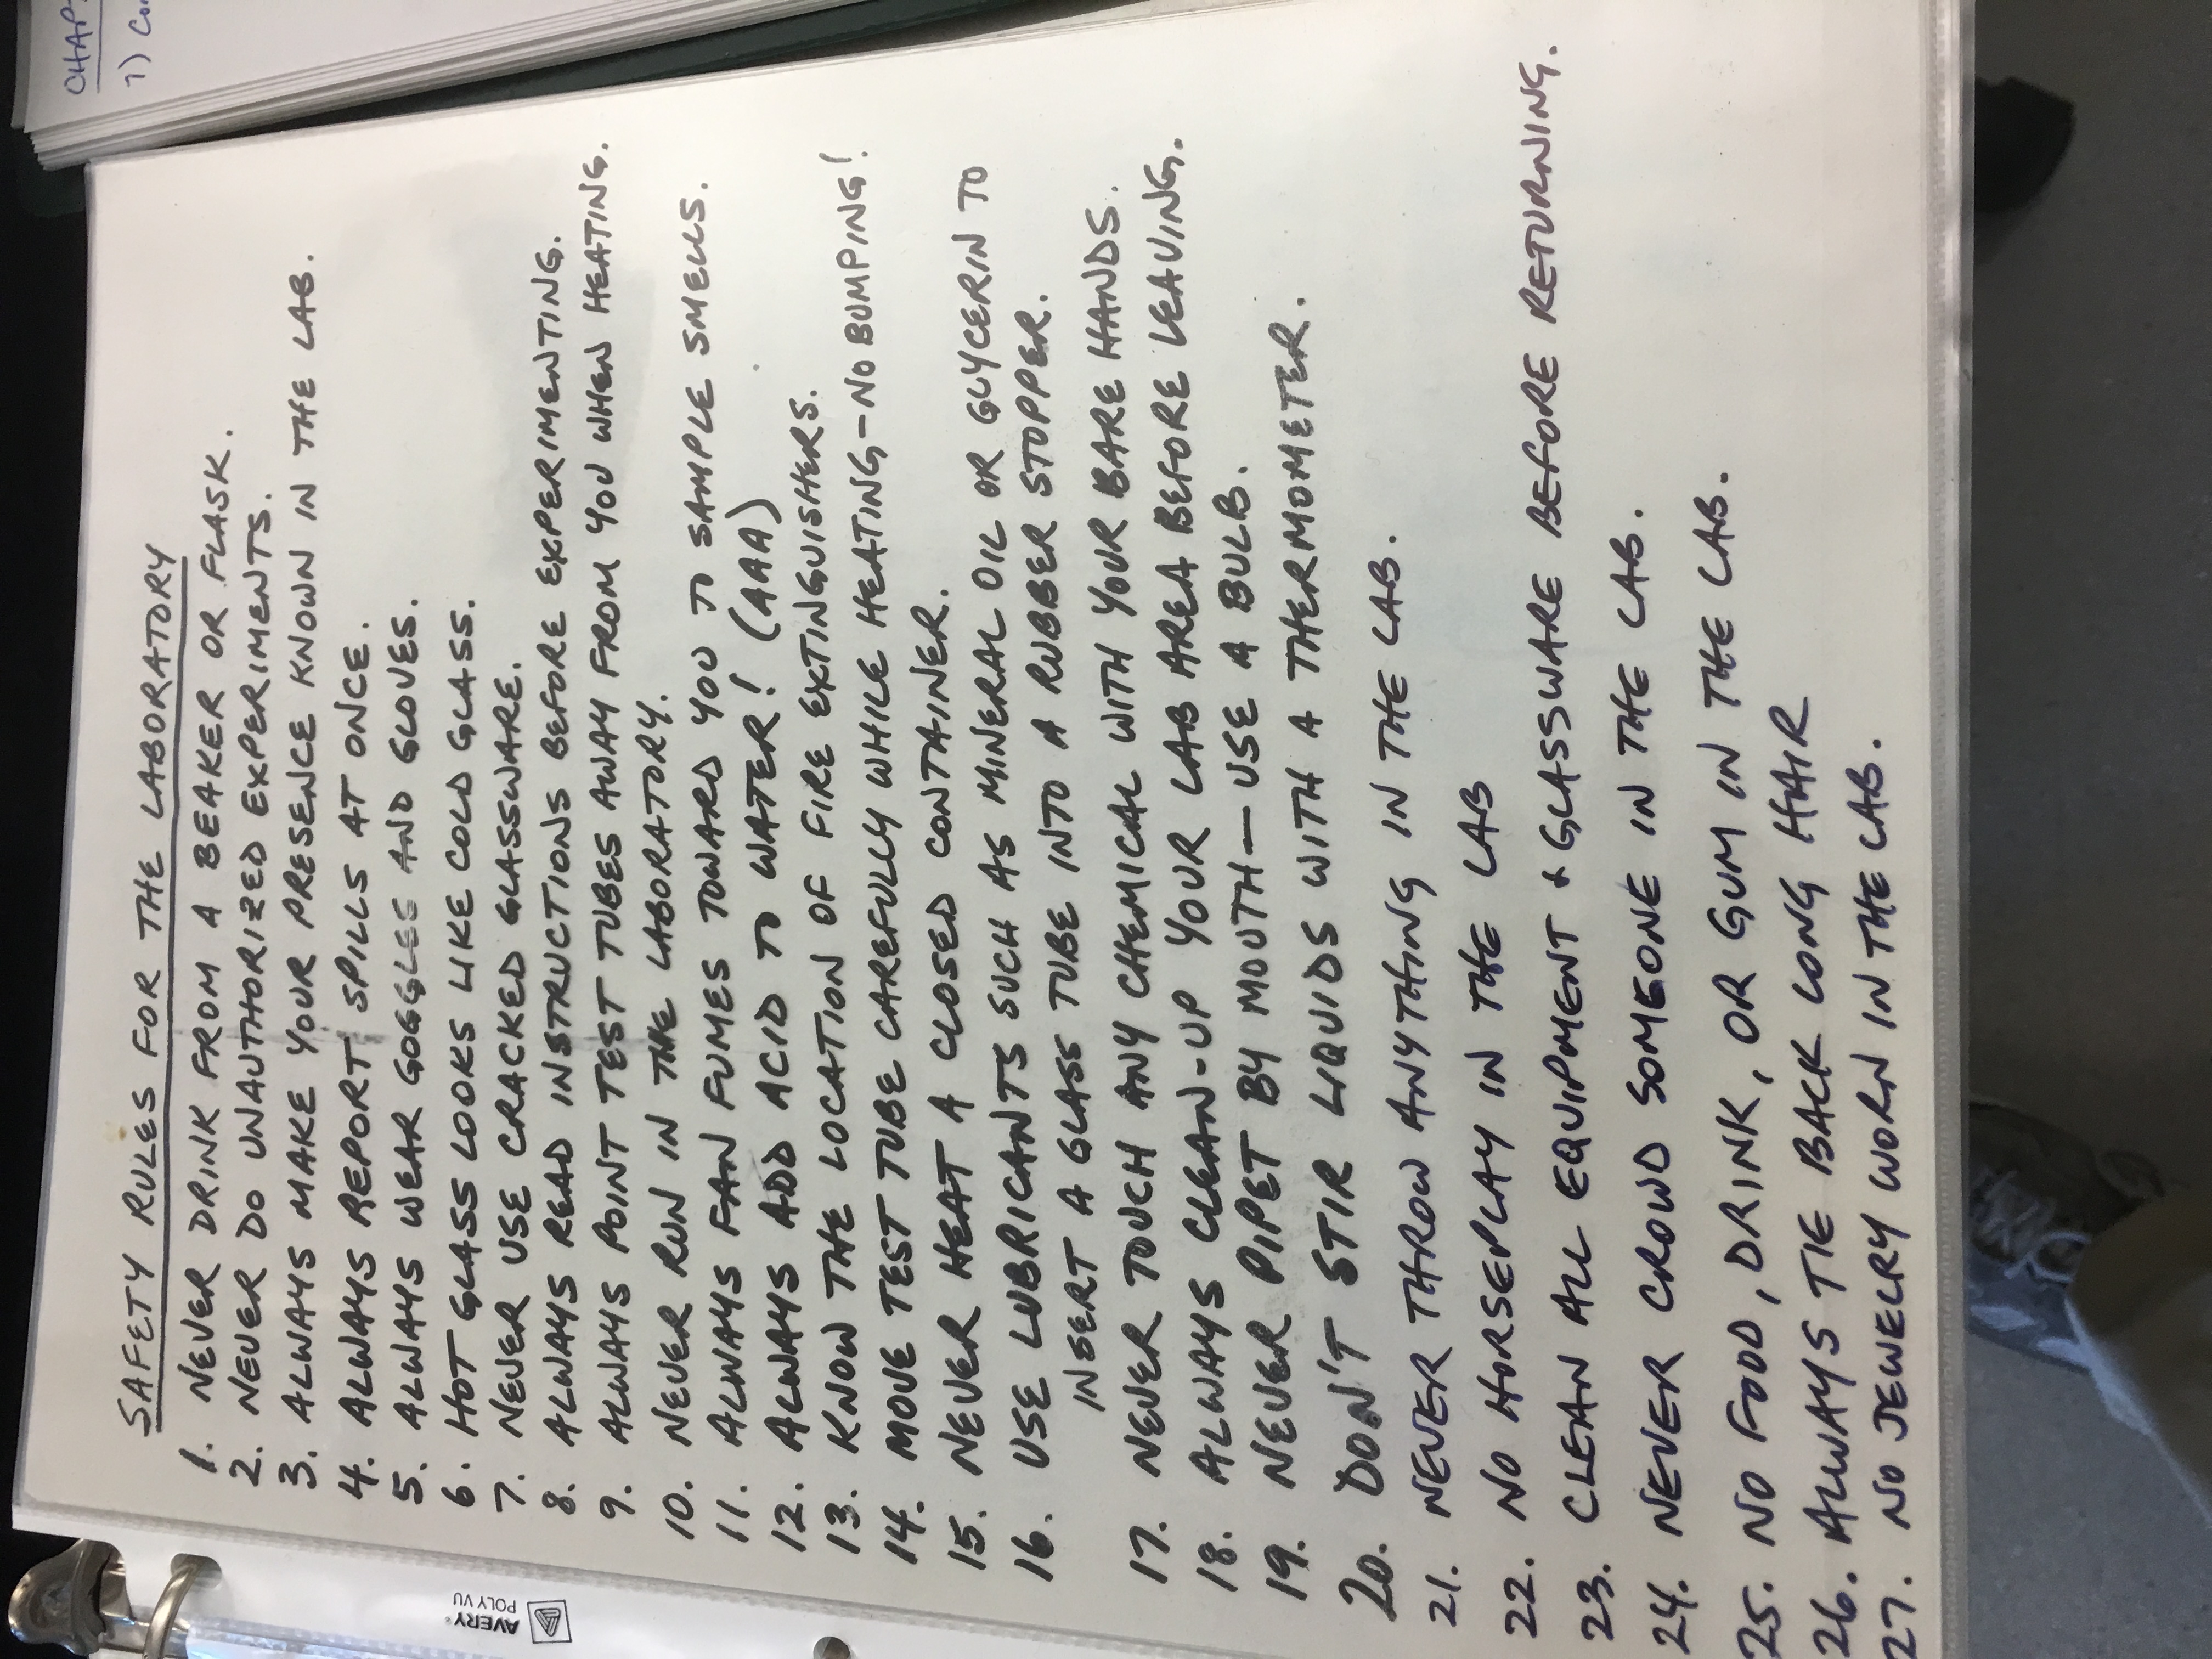 CHAP
1) Co
SAFETY RULES FOR THE LABORATORY
1. NEVER DRINK FROM A BEAKER OR FLASK.
2. NEVER DO UNAUTHORIZED EXPERIMENTS.
3. ALWAYS MAKE YOUR PRESENCE KNOWN IN THE LAB.
4. ALWAYS REPORT SPILLS AT ONCE.
5. ALWAYS WEAR GOGGLES AND GLOVES.
6. HOT GLASS LOOKS LIKE COLD GLASS.
7. NEVER USE CRACKED GLASSWARE.
8. ALWAYS READ INSTRUCTIONS BEFORE EXPERIMENTING.
9. ALWAYS POINT TEST TUBES AWAY FROM YOU WHEN HEATING.
10. NEVER RUN IN THE LABORATORY.
11. ALWAYS FAN FUMES TOWARD YOU TO SAMPLE SMELLS.
12. ALWAYS ADD ACID TO WATER! (AAA)
13. KNOW THE LOCATION OF FIRE EXTINGUISHERS.
14. MOVE TEST TUBE CAREFULLY WHILE HEATING-NO BUMPING!
15. NEVER HEAT A CLOSED CONTAINER.
16. USE LUBRICANTS SUCH AS MINERAL OIL OR GLYCERIN TO
INSERT A GLASS TUBE INTO A RUBBER STOPPER.
17. NEVER TOUCH ANY CHEMICAL WITH YOUR BARE HANDS.
18. ALWAYS CLEAN-UP YOUR LAB AREA BEFORE LEAVING.
19. NEVER PIPET BY MOUTH—USE A BULB.
20. DON'T STIR LIQUIDS WITH A THERMOMETER.
21. NEVER THROW ANYTHING IN THE LAB.
22. NO HORSEPLAY IN THE LAB
23. CLEAN ALL EQUIPMENT & GLASSWARE BEFORE RETURNING.
24. NEVER CROWD SOMEONE IN THE LAB.
25. NO FOOD, DRINK, OR GUM IN THE LAB.
26. ALWAYS TIE BACK LONG HAIR
27. NO JEWELRY WORN IN THE LAB.
AVERY
POLY VU